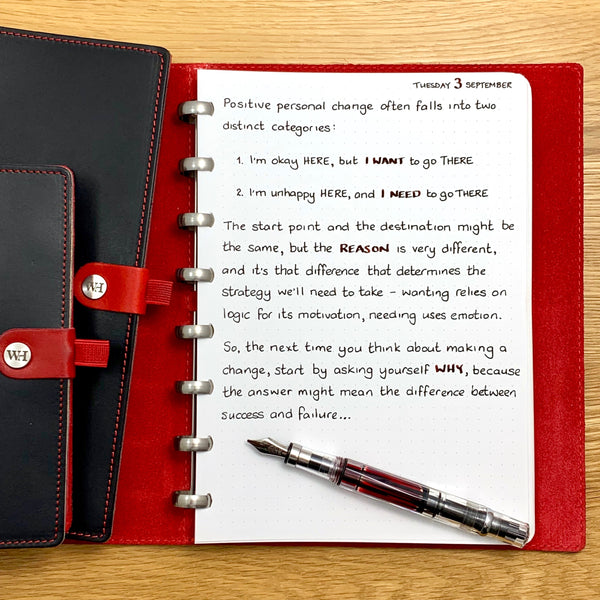 TUESDAY 3 SEPTEMBER
Positive personal change often falls into two
distinct categories:
1. I'm okay HERE, but I WANT to go THERE
2. I'm unhappy HERE, and I NEED to go THERE
The start point and the destination might be
the same, but the REASON is very different,
and it's that difference that determines the
strategy we'll need to take – wanting relies on
logic for its motivation, needing uses emotion.
So, the next time you think about making a
change, start by asking yourself WHY, because
the answer might mean the difference between
success and failure...
WH
WH